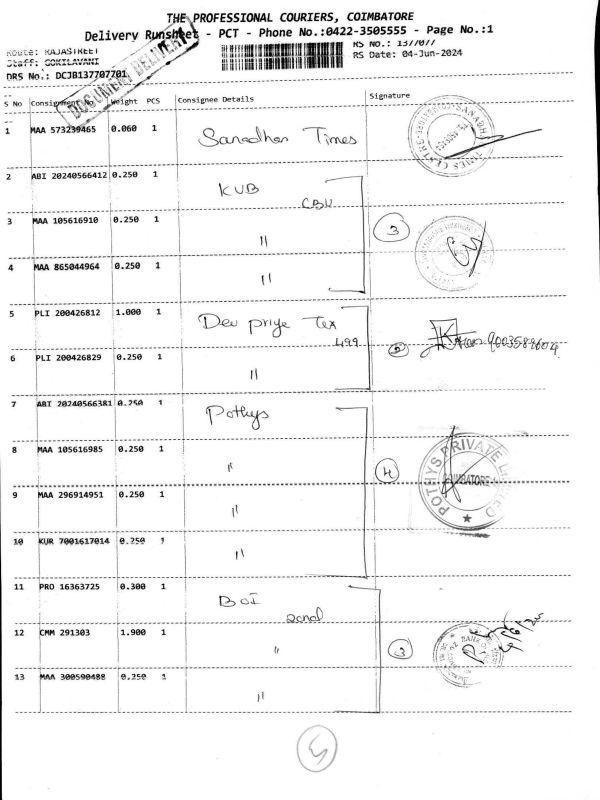 THE PROFESSIONAL COURIERS, COIMBATORE
Delivery Runsheet - PCT - Phone No.:0422-3505555 - Page No.:1
Route: RAJASTREET
RS No.: 1377077
Staff: GOKILAVANI
RS Date: 04-Jun-2024
DRS No.: DCJB137707701
DOCUMENT DELIVERY
S No Consignment No. Weight PCS Consignee Details Signature
1 MAA 573239465 0.060 1 Sanadhan Times
2 ABI 20240566412 0.250 1 KUB
CBU
3 MAA 105616910 0.250 1 "
3
4 MAA 865044964 0.250 1 "
5 PLI 200426812 1.000 1 Dev priye Tex
499
2
6 PLI 200426829 0.250 1 "
7 ABI 20240566381 0.250 1 Pothys
8 MAA 105616985 0.250 1 "
4
POTHYS PRIVATE LIMITED
COIMBATORE
9 MAA 296914951 0.250 1 "
10 KUR 7001617014 0.250 1 "
11 PRO 16363725 0.300 1 BOI
zonal
12 CMM 291303 1.900 1 "
3
13 MAA 300590488 0.250 1 "
5